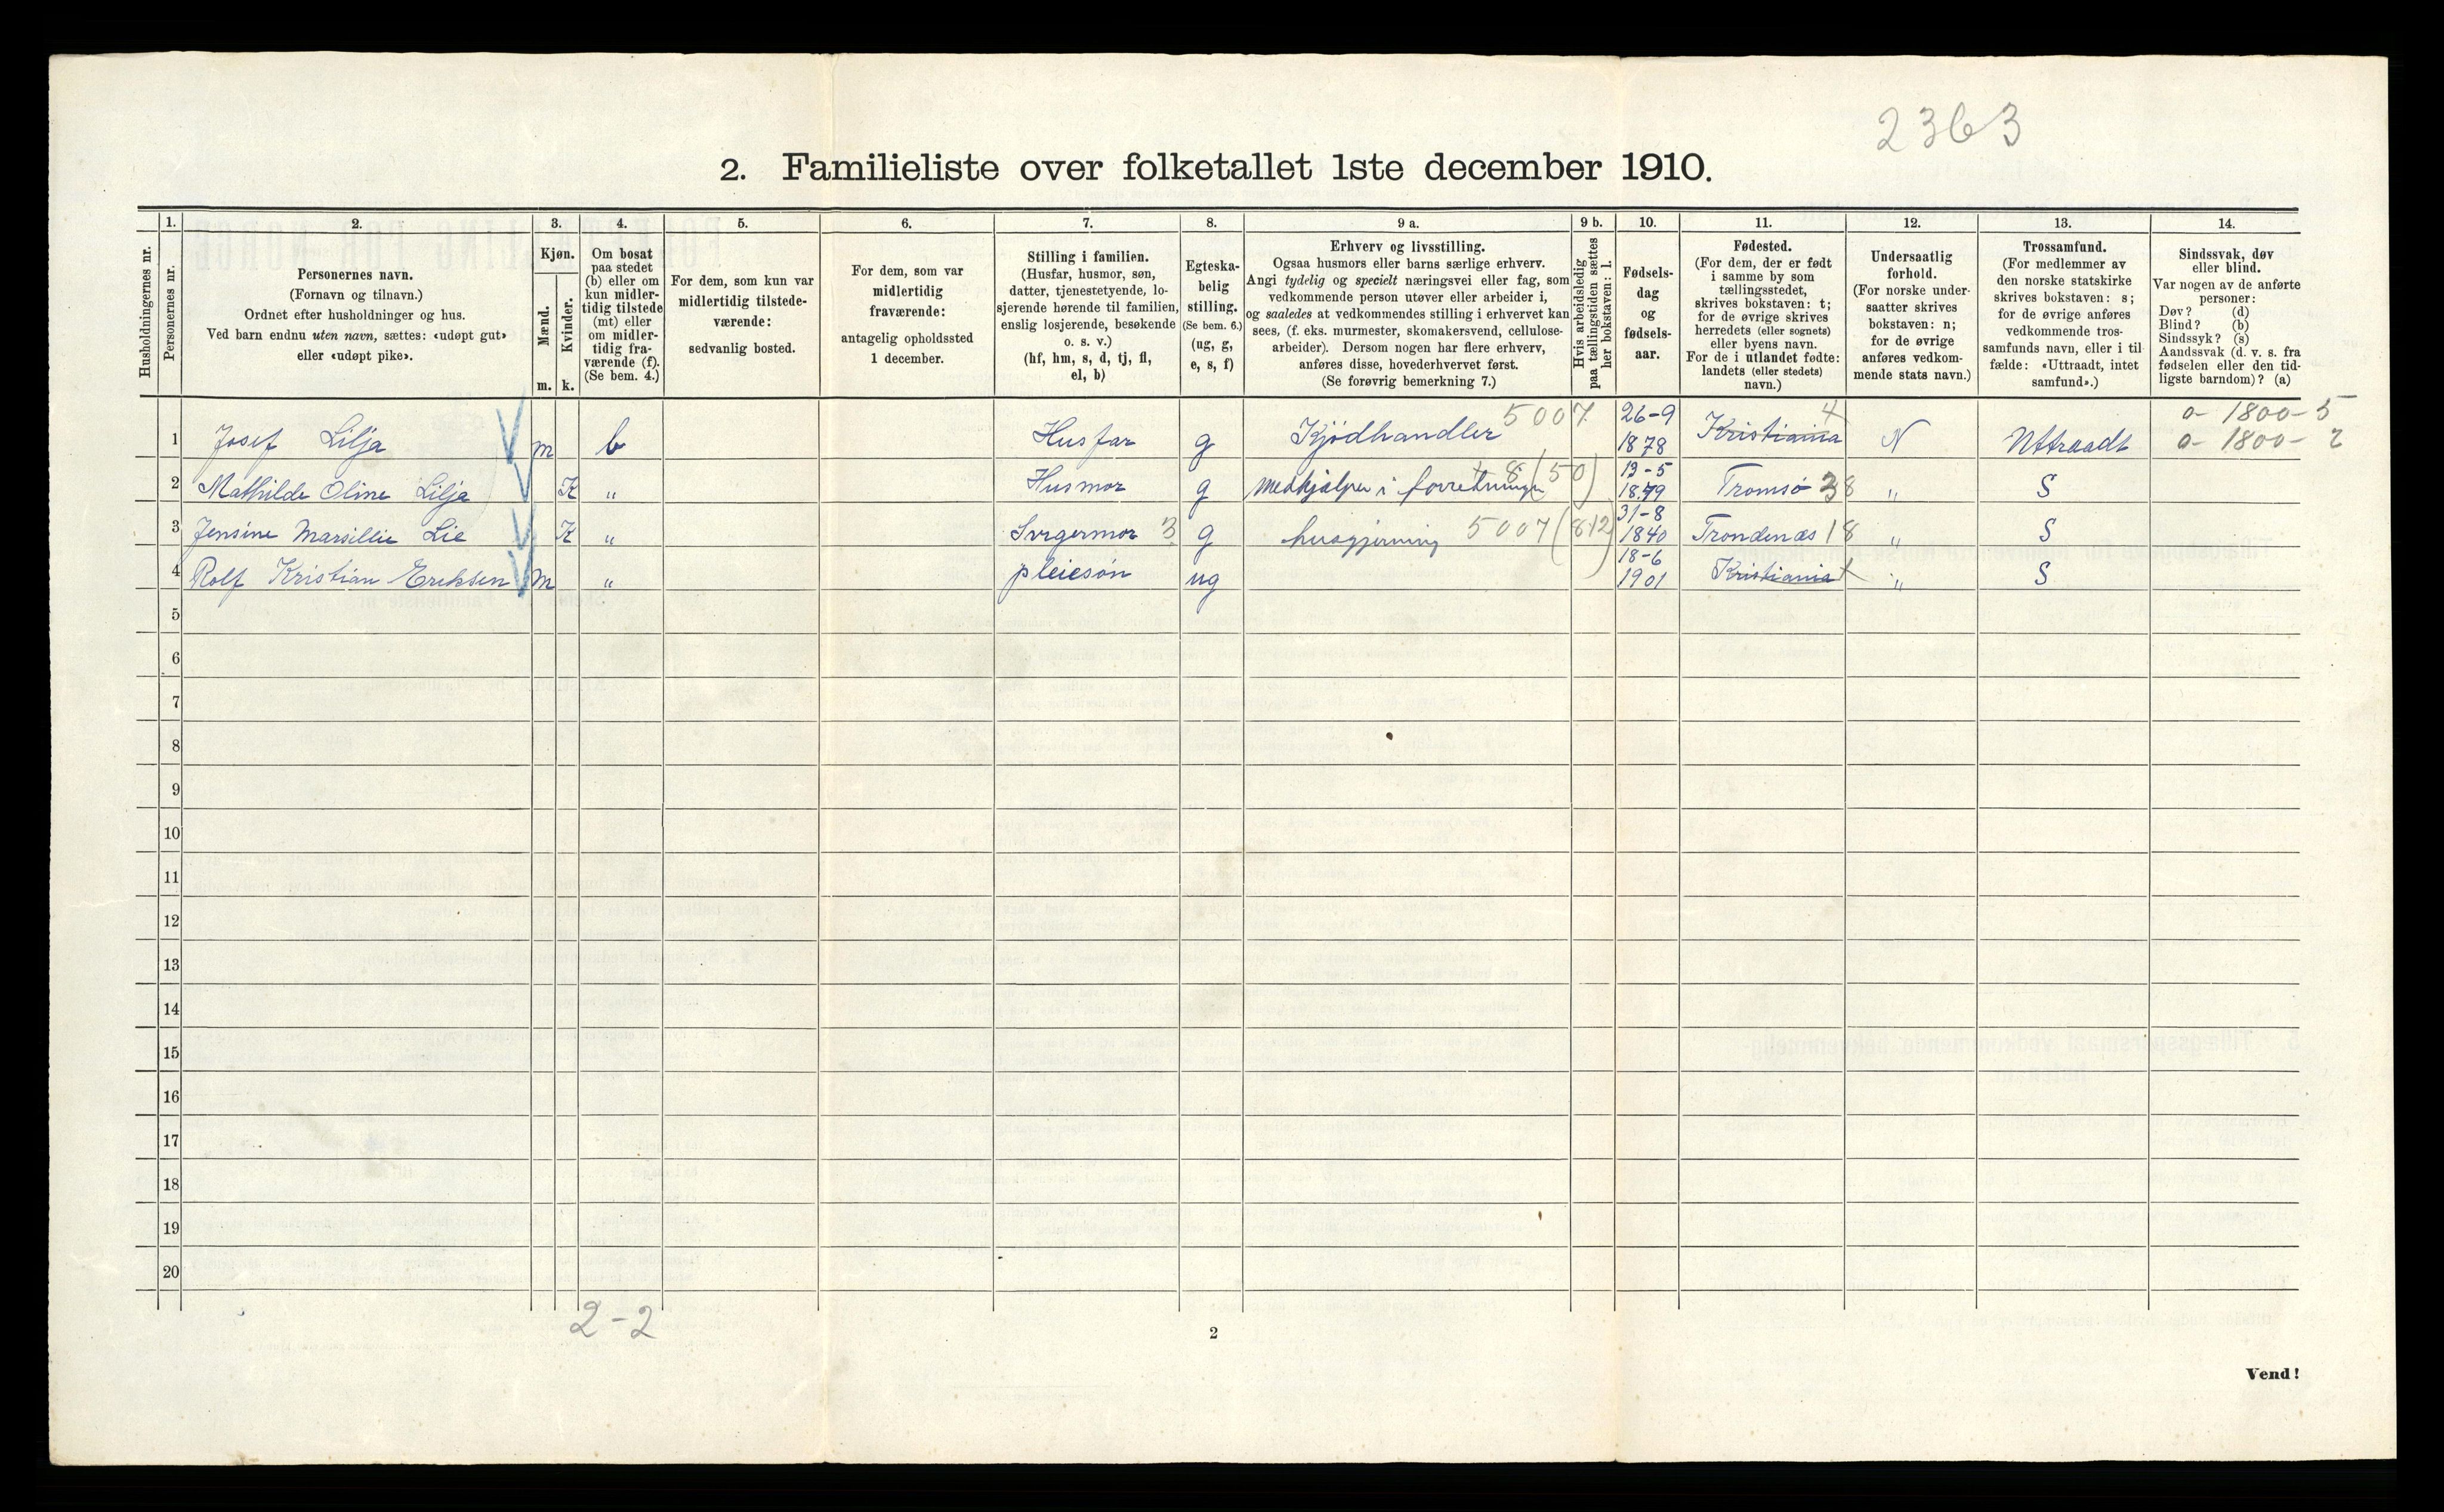 2363
2. Familieliste over folketallet 1ste december 1910.
Husholdningernes nr.
1. Personernes nr.
2. Personernes navn.
(Fornavn og tilnavn.)
Ordnet efter husholdninger og hus.
Ved barn endnu uten navn, sættes: «udøpt gut»
eller «udøpt pike».
3. Kjøn.
Mænd. m.
Kvinder. k.
4. Om bosat
paa stedet
(b) eller om
kun midler-
tidig tilstede
(mt) eller
om midler-
tidig fra-
værende (f).
(Se bem. 4.)
5. For dem, som kun var
midlertidig tilstede-
værende:
sedvanlig bosted.
6. For dem, som var
midlertidig
fraværende:
antagelig opholdssted
1 december.
7. Stilling i familien.
(Husfar, husmor, søn,
datter, tjenestetyende, lo-
sjerende hørende til familien,
enslig losjerende, besøkende
o. s. v.)
(hf, hm, s, d, tj, fl,
el, b)
8. Egteska-
belig
stilling.
(Se bem. 6.)
(ug, g,
e, s, f)
9 a. Erhverv og livsstilling.
Ogsaa husmors eller barns særlige erhverv.
Angi tydelig og specielt næringsvei eller fag, som
vedkommende person utøver eller arbeider i,
og saaledes at vedkommendes stilling i erhvervet kan
sees, (f. eks. murmester, skomakersvend, cellulose-
arbeider). Dersom nogen har flere erhverv,
anføres disse, hovederhvervet først.
(Se forøvrig bemerkning 7.)
9 b. Hvis arbeidsledig
paa tællingstiden sættes
her bokstaven: l.
10. Fødsels-
dag
og
fødsels-
aar.
11. Fødested.
(For dem, der er født
i samme by som
tællingsstedet,
skrives bokstaven: t;
for de øvrige skrives
herredets (eller sognets)
eller byens navn.
For de i utlandet fødte:
landets (eller stedets)
navn.)
12. Undersaatlig
forhold.
(For norske under-
saatter skrives
bokstaven: n;
for de øvrige
anføres vedkom-
mende stats navn.)
13. Trossamfund.
(For medlemmer av
den norske statskirke
skrives bokstaven: s;
for de øvrige anføres
vedkommende tros-
samfunds navn, eller i til
fælde: «Uttraadt, intet
samfund».)
14. Sindssvak, døv
eller blind.
Var nogen av de anførte
personer:
Døv? (d)
Blind? (b)
Sindssyk? (s)
Aandssvak (d. v. s. fra
fødselen eller den tid-
ligste barndom)? (a)
1 Josef Lilja m b Husfar g Kjødhandler 5007. 26-9 1878 Kristiania N Uttraadt 0- 1800-5
0- 1800- 2
2 Mathilde Oline Lilja K " Husmor g medhjælper i forretningen 8 (50) 13-5 1879 Tromsö 38 " S
3 Jensine Marsillie Lie K " Svigermor 3 g husgjerning 5007 (812) 31-8 1840 Trondenæs 18 " S
4 Rolf Kristian Eriksen m " pleiesön ug 18-6 1901 Kristiania t " S
5
6
7
8
9
10
11
12
13
14
15
16
17
18
19
20
2-2
2
Vend!